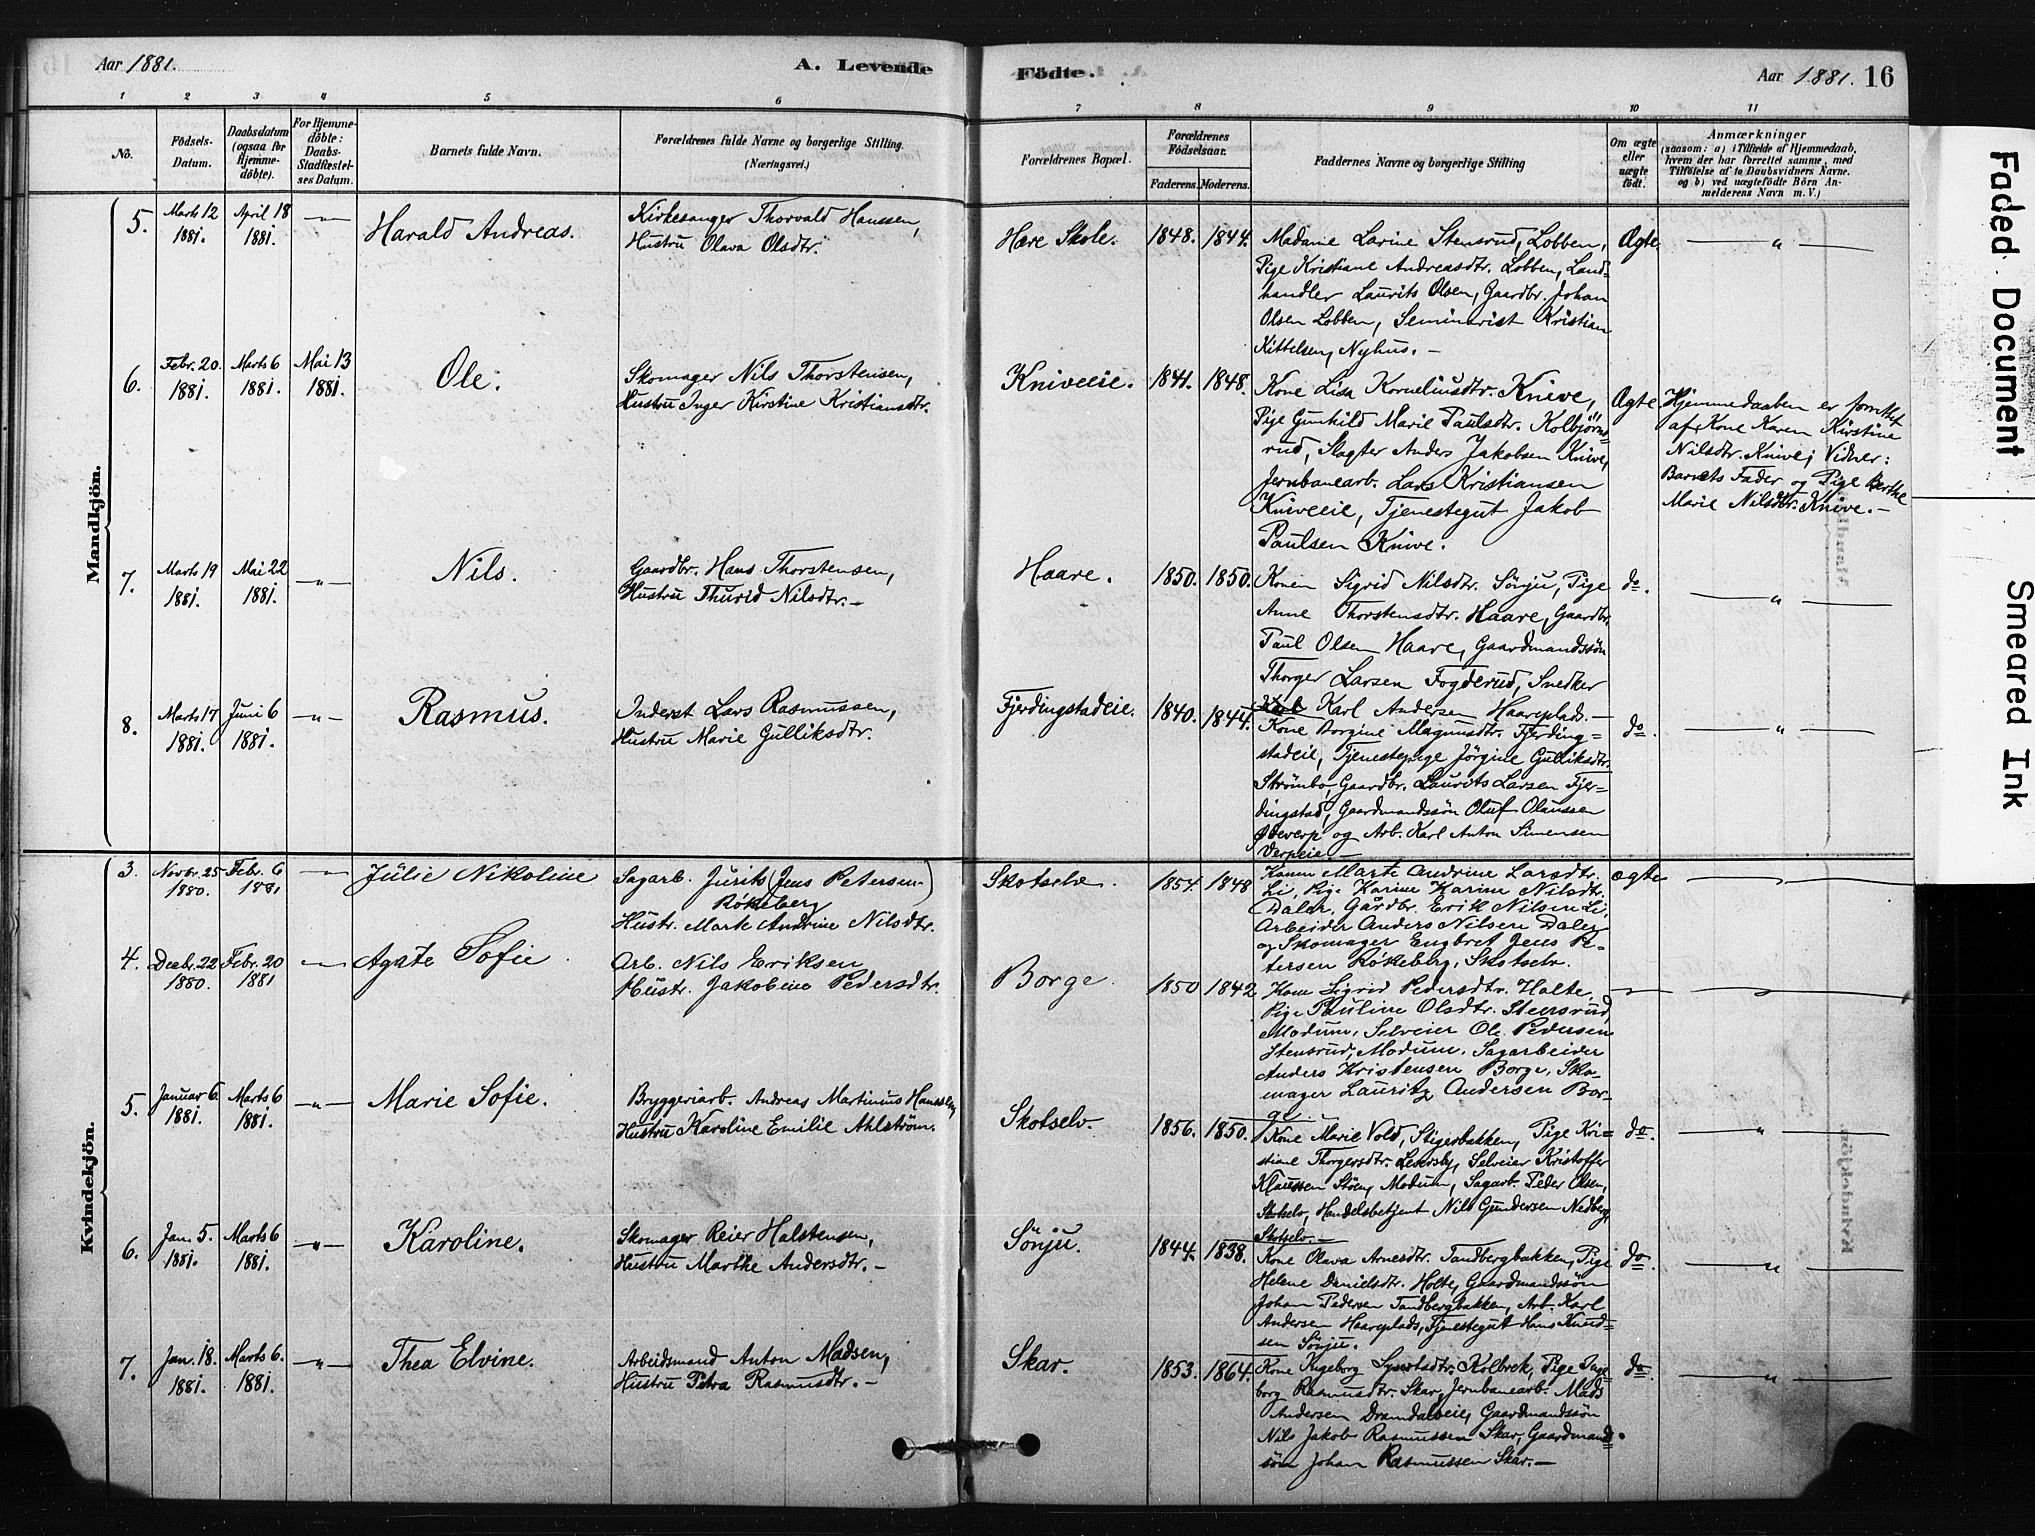 Aar 1881.
A. Levende
Födte.
Aar 1881. 16
1 2 3 4 5 6 7 8 9 10 11
No.
Födsels-
Datum.
Daabsdatum
(ogsaa for
Hjemme-
döbte).
For Hjemme-
döbte:
Daabs-
Stadfæstel-
ses Datum.
Barnets fulde Navn.
Forældrenes fulde Navne og borgerlige Stilling.
(Næringsvei.)
Forældrenes Bopæl.
Forældrenes
Födselsaar.
Faderens. Moderens.
Faddernes Navne og borgerlige Stilling
Om ægte
eller
uægte
födt.
Anmærkninger
(saasom: a) i Tilfælde af Hjemmedaab,
hvem der har forrettet samme, med
Tilföielse af to Daabsvidners Navne.
og b) ved uægtefödte Börn An-
melderens Navn m. V.)
Mandkjön.
5.
Marts 12
1881.
April 18
1881.
—"—
Harald Andreas.
Kirkesanger Thorvald Hanssen,
Hustru Olava Olsdtr.
Hære Skole.
1848. 1844.
Madame Lavine Stensrud, Lobben,
Pige Kristiane Andreasdtr. Lobben, Land-
handler Laurits Olsen, Gaardbr. Johan
Olsen Lobben, Seminarist Kristian
Kittelsen, Nyhus. —
Ægte
— " —
6.
Febr. 20.
1881.
Marts 6
1881.
Mai 13
1881.
Ole.
Skomager Nils Thorstensen,
Hustru Inger Kirstine Kristiansdtr.
Kniveeie.
1841. 1848.
Kone Lisa Korneliusdtr. Knive,
Pige Gunhild Marie Paulsdtr. Kolbjørns-
rud, Slagter Anders Jakobsen Knive,
Jernbanearb. Lars Kristiansen
Kniveeie, Tjenestegut Jakob
Paulsen Knive.
Ægte
Hjemmedaaben er forrettet
af Kone Karen Kirstine
Nilsdtr. Knive; Vidner:
Barnets Fader og Pige Berthe
Marie Nilsdtr. Knive. —
7.
Marts 19
1881.
Mai 22
1881.
—"—
Nils.
Gaardbr. Hans Thorstensen,
Hustru Thurid Nilsdtr. —
Haare.
1850. 1850.
Konen Sigrid Nilsdtr. Sönju, Pige
Anne Thorstensdtr. Haare, Gaardbr.
Paul Olsen Haare, Gaardmandssön
Thorger Larsen Fogderud, Snedker
Karl Andersen Haareplads. —
do.
— " —
8.
Marts 17
1881.
Juni 6
1881.
—"—
Rasmus.
Inderst Lars Rasmussen,
Hustru Marie Gulliksdtr.
Fjerdingstadeie.
1840. 1844.
Kone Borgine Magnusdtr. Fjerding-
stadeie, Tjenestepige Jörgine Gulliksdtr.
Strömbo, Gaardbr. Laurits Larsen Fjer-
dingstad, Gaardmandssön Oluf Olaussen
Ødeverp og Arb. Karl Anton Simensen
Verpeie. —
do.
— " —
Kvindekjön.
3.
Novbr. 25
1880.
Febr. 6
1881
Julie Nikoline
Sagarb. Jurits (Jens Petersen)
Rökeberg
Hustr. Marte Andrine Nilsdtr.
Skotselv.
1854. 1848
Konen Marte Andrine Larsdtr.
Li, Pige Karine Karine Nilsdtr.
Daler, Gårdbr. Erik Nilsen Li,
Arbeider Anders Nilsen Daler
og Skomager Engbret Jens Pe-
tersen Rökeberg, Skotselv.
ægte
4.
Decbr. 22
1880.
Febr. 20
1881
Agate Sofie
Arb. Nils Eriksen
Hustr. Jakobine Pedersdtr.
Borge.
1850 1842
Kone Sigrid Pedersdtr. Holte,
Pige Pauline Olsdtr. Stensrud,
Modum, Selveier Ole Pedersen
Stensrud, Modum. Sagarbeider
Anders Kristensen Borge, Sko-
mager Lauritz Andersen Bor-
ge.
5.
Januar 6.
1881.
Marts 6
1881.
—"—
Marie Sofie.
Bryggeriarb. Andreas Martinius Hanssen,
Hustru Karoline Emilie Ahlström.
Skotselv.
1856. 1850.
Kone Marie Vold, Stigerbakken, Pige Kri-
stiane Thorgersdtr. Leversby, Selveier Kristoffer
Klaussen Støen, Modum, Sagarb. Peder Olsen,
Skotselv, Handelsbetjent Nils Gundersen Nedberg,
Skotselv. —
do.
— " —
6.
Jan. 5.
1881.
Marts 6
1881.
—"—
Karoline.
Skomager Reier Halstensen,
Hustru Marthe Andersdtr. —
Sönju.
1844. 1838.
Kone Olava Arnesdtr. Tandbergbakken, Pige
Helene Danielsdtr. Holte, Gaardmandssön
Johan Pedersen Tandbergbakken, Arb. Karl
Andersen Haareplads, Tjenestegut Hans Knud-
sen Sönju.
do.
— " —
7.
Jan. 18.
1881.
Marts 6.
1881.
—"—
Thea Elvine.
Arbeidsmand Anton Madsen,
Hustru Petra Rasmusdtr. —
Skar.
1853. 1864.
Kone Ingeborg Syvertsdtr. Kolbrek, Pige Inge-
borg Rasmusdtr. Skar, Jernbanearb. Mads
Andersen Dramdalseie, Gaardmandssön
Nils Jakob Rasmussen Skar, Gaardmands-
sön Johan Rasmussen Skar. —
do.
— " —
Faded Document
Smeared Ink